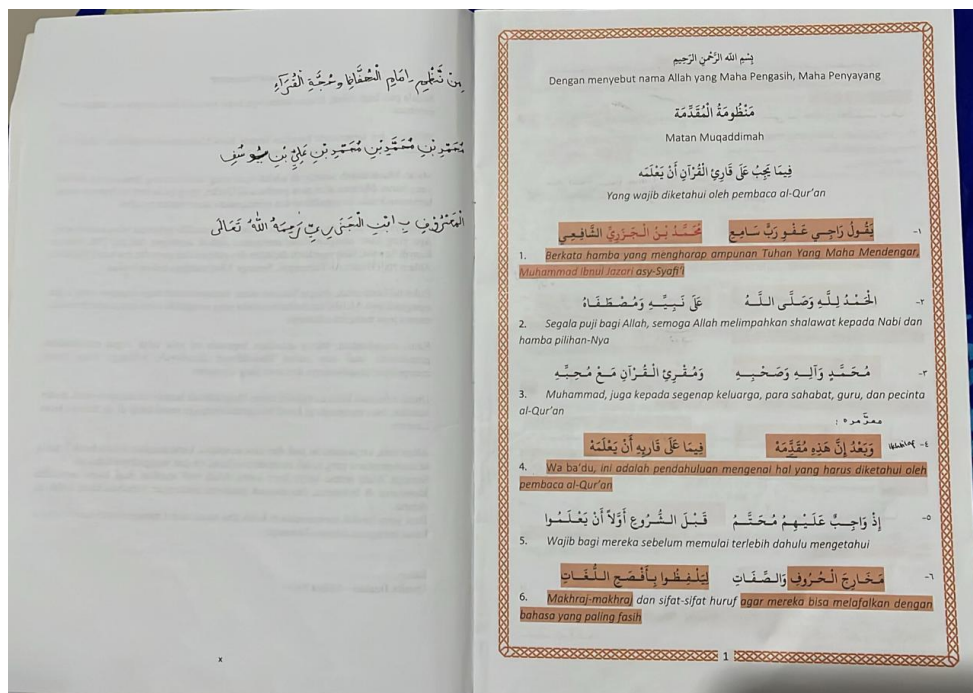 مِنْ نَّظْمِ إِمَامِ الْحُفَّاظِ وَحُجَّةِ الْقُرَّآءِ
مُحَمَّدِ بْنِ مُحَمَّدِ بْنِ مُحَمَّدِ بْنِ عَلِيِّ بْنِ يُوسُفِ
الْمَعْرُوْفِ بِ ابْنِ الْجَزَرِيِّ رَحِمَهُ اللهُ تَعَالَى
x
بِسْمِ اللهِ الرَّحْمٰنِ الرَّحِيمِ
Dengan menyebut nama Allah yang Maha Pengasih, Maha Penyayang
مَنْظُومَةُ الْمُقَدِّمَة
Matan Muqaddimah
فِيمَا يَجِبُ عَلَى قَارِئِ الْقُرْآنِ أَنْ يَعْلَمَه
Yang wajib diketahui oleh pembaca al-Qur'an
١- يَقُولُ رَاجِي عَفْوِ رَبٍّ سَامِعِ مُحَمَّدُ بْنُ الْجَزَرِيِّ الشَّافِعِي
1. Berkata hamba yang mengharap ampunan Tuhan Yang Maha Mendengar,
Muhammad ibnul Jazari asy-Syafi'i
٢- الْحَمْدُ لِلَّهِ وَصَلَّى اللَّهُ عَلَى نَبِيِّهِ وَمُصْطَفَاهُ
2. Segala puji bagi Allah, semoga Allah melimpahkan shalawat kepada Nabi dan
hamba pilihan-Nya
٣- مُحَمَّدٍ وَآلِهِ وَصَحْبِهِ وَمُقْرِئِ الْقُرْآنِ مَعْ مُحِبِّهِ
3. Muhammad, juga kepada segenap keluarga, para sahabat, guru, dan pecinta
al-Qur'an
٤- وَبَعْدُ إِنَّ هَذِهِ مُقَدِّمَهْ فِيمَا عَلَى قَارِئِهِ أَنْ يَعْلَمَهْ
4. Wa ba'du, ini adalah pendahuluan mengenai hal yang harus diketahui oleh
pembaca al-Qur'an
٥- إِذْ وَاجِبٌ عَلَيْهِمُ مُحَتَّمُ قَبْلَ الشُّرُوعِ أَوَّلاً أَنْ يَعْلَمُوا
5. Wajib bagi mereka sebelum memulai terlebih dahulu mengetahui
٦- مَخَارِجَ الْحُرُوفِ وَالصِّفَاتِ لِيَلْفِظُوا بِأَفْصَحِ اللُّغَاتِ
6. Makhraj-makhraj dan sifat-sifat huruf agar mereka bisa melafalkan dengan
bahasa yang paling fasih
1